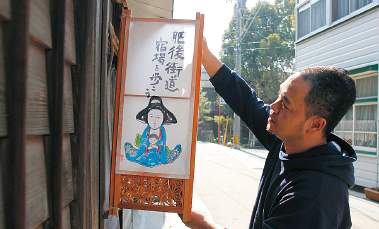 肥後街道
宿場を歩こう